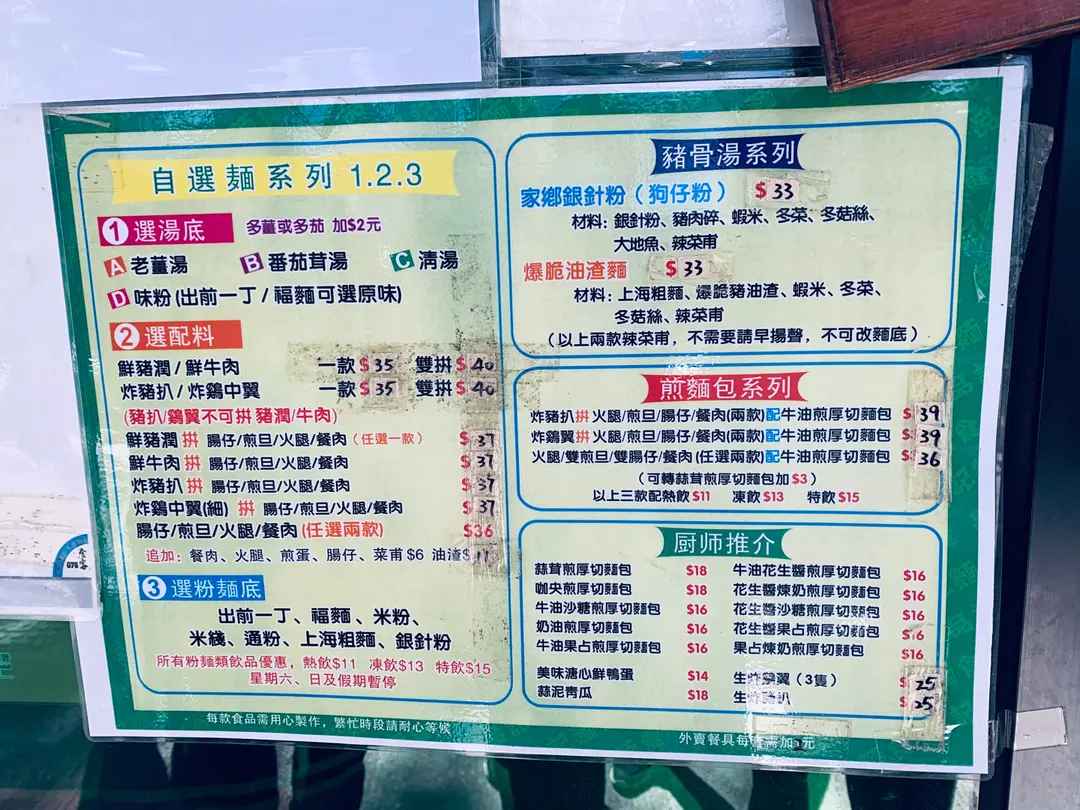 自選麵系列 1.2.3
1 選湯底 多薑或多茄 加$2元
A 老薑湯 B 番茄茸湯 C 清湯
D 味粉 (出前一丁 / 福麵可選原味)
2 選配料
鮮豬潤 / 鮮牛肉 一款 $35 雙拼 $40
炸豬扒 / 炸鷄中翼 一款 $35 雙拼 $40
(豬扒/鷄翼不可拼 豬潤/牛肉)
鮮豬潤 拼 腸仔/煎旦/火腿/餐肉 (任選一款) $37
鮮牛肉 拼 腸仔/煎旦/火腿/餐肉 $37
炸豬扒 拼 腸仔/煎旦/火腿/餐肉 $37
炸鷄中翼(細) 拼 腸仔/煎旦/火腿/餐肉 $37
腸仔/煎旦/火腿/餐肉 (任選兩款) $36
追加: 餐肉、火腿、煎蛋、腸仔、菜甫 $6 油渣$
3 選粉麵底
出前一丁、福麵、米粉、
米綫、通粉、上海粗麵、銀針粉
所有粉麵類飲品優惠，熱飲$11 凍飲$13 特飲$15
星期六、日及假期暫停
豬骨湯系列
家鄉銀針粉（狗仔粉） $33
材料: 銀針粉、豬肉碎、蝦米、冬菜、冬菇絲、
大地魚、辣菜甫
爆脆油渣麵 $33
材料: 上海粗麵、爆脆豬油渣、蝦米、冬菜、
冬菇絲、辣菜甫
（以上兩款辣菜甫，不需要請早揚聲，不可改麵底）
煎麵包系列
炸豬扒拼 火腿/煎旦/腸仔/餐肉(兩款)配牛油煎厚切麵包 $39
炸鷄翼拼 火腿/煎旦/腸仔/餐肉(兩款)配牛油煎厚切麵包 $39
火腿/雙煎旦/雙腸仔/餐肉 (任選兩款)配牛油煎厚切麵包 $36
（可轉蒜茸煎厚切麵包加 $3）
以上三款配熱飲$11 凍飲$13 特飲$15
厨师推介
蒜茸煎厚切麵包 $18 牛油花生醬煎厚切麵包 $16
咖央煎厚切麵包 $18 花生醬煉奶煎厚切麵包 $16
牛油沙糖煎厚切麵包 $16 花生醬沙糖煎厚切麵包 $16
奶油煎厚切麵包 $16 花生醬果占煎厚切麵包 $16
牛油果占煎厚切麵包 $16 果占煉奶煎厚切麵包 $16
美味溏心鮮鴨蛋 $14 生炸翼（3隻） $25
蒜泥青瓜 $18 生炸扒 $25
每款食品需用心製作，繁忙時段請耐心等候
外賣餐具每需加元